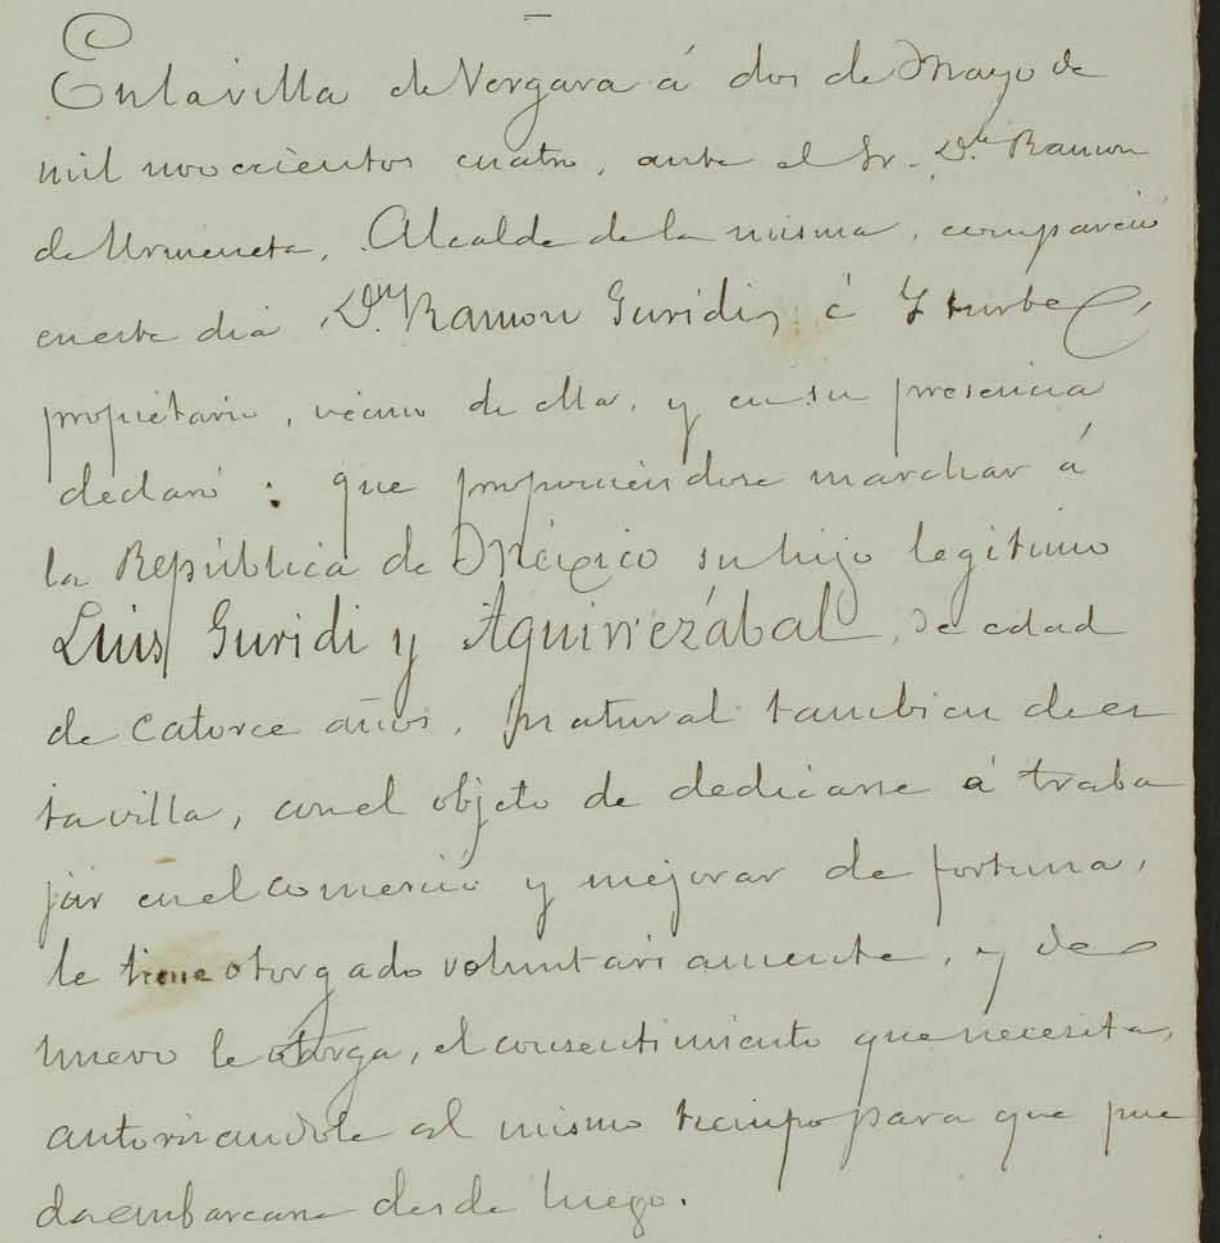 En la villa de Vergara á dos de Mayo de
mil novecientos cuatro, ante el Sr. Dn. Ramon
de Urmeneta, Alcalde de la misma, compareció
en este dia Dn. Ramon Guridi, é Yturbe,
propietario, vecino de ella, y en su presencia
declaró: que proponiéndose marchar á
la República de México su hijo legítimo
Luis Guridi y Aguirrezábal, de edad
de catorce años, natural tambien de es
ta villa, con el objeto de dedicarse á traba
jar en el comercio y mejorar de fortuna,
le tiene otorgado voluntariamente, y de
nuevo le otorga, el consentimiento que necesita,
autorizandole al mismo tiempo para que pue
da embarcarse desde luego.